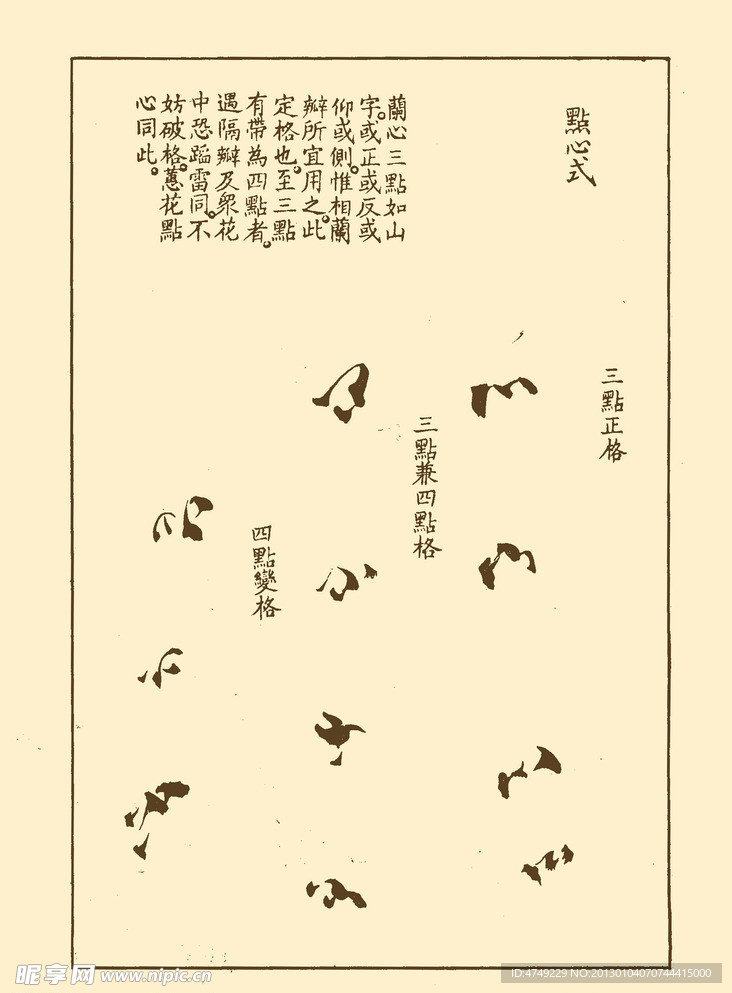 點心式
蘭心三點如山
字。或正或反或
仰或側。惟相蘭
瓣所宜用之。此
定格也。至三點
有帶為四點者。
遇隔瓣及眾花
中恐蹈雷同。不
妨破格。蕙花點
心同此。
三點正格
三點兼四點格
四點變格
昵享网 www.nipic.cn
ID:4749229 NO:20130104070744415000